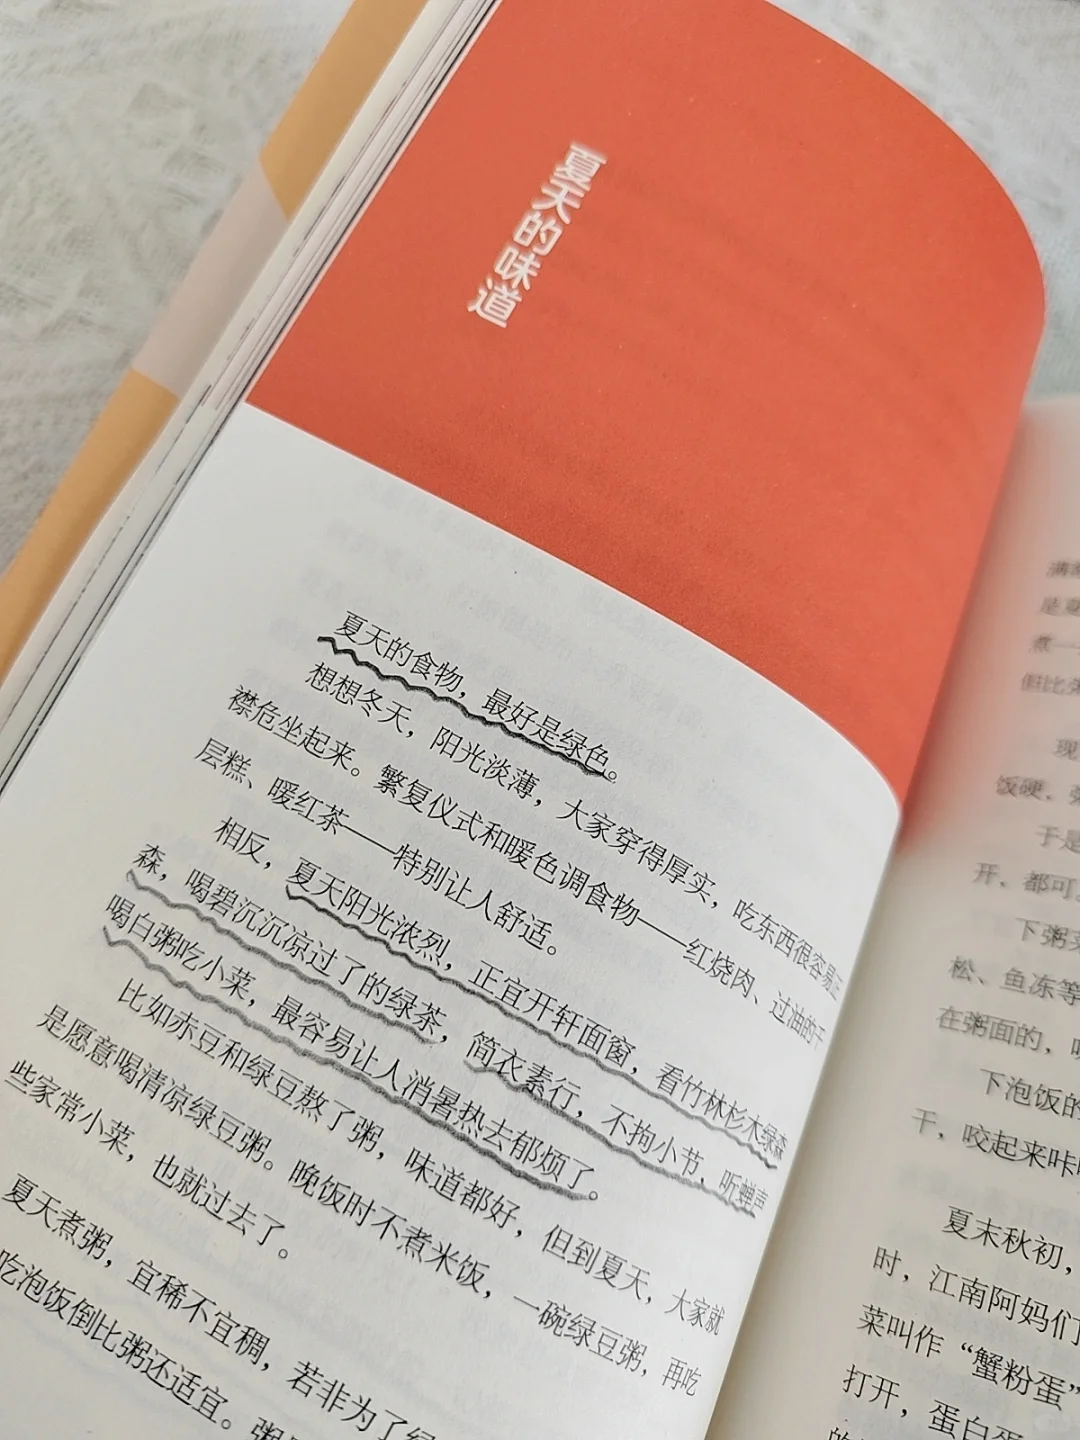 夏天的味道
夏天的食物，最好是绿色。
想想冬天，阳光淡薄，大家穿得厚实，吃东西很容易正
襟危坐起来。繁复仪式和暖色调食物——红烧肉、过油的千
层糕、暖红茶——特别让人舒适。
相反，夏天阳光浓烈，正宜开轩面窗，看竹林杉木绿森
森，喝碧沉沉凉过了的绿茶，简衣素行，不拘小节，听蝉声
喝白粥吃小菜，最容易让人消暑热去郁烦了。
比如赤豆和绿豆熬了粥，味道都好，但到夏天，大家就
是愿意喝清凉绿豆粥。晚饭时不煮米饭，一碗绿豆粥，再吃
些家常小菜，也就过去了。
夏天煮粥，宜稀不宜稠，若非为了绿
吃泡饭倒比粥还适宜。粥
是
煮一
但比
现
饭硬，
于是
开，都可
下粥
松、鱼冻等
在粥面的，
下泡饭的
干，咬起来咔
夏末秋初，
时，江南阿妈们
菜叫作“蟹粉蛋”
打开，蛋白蛋
的